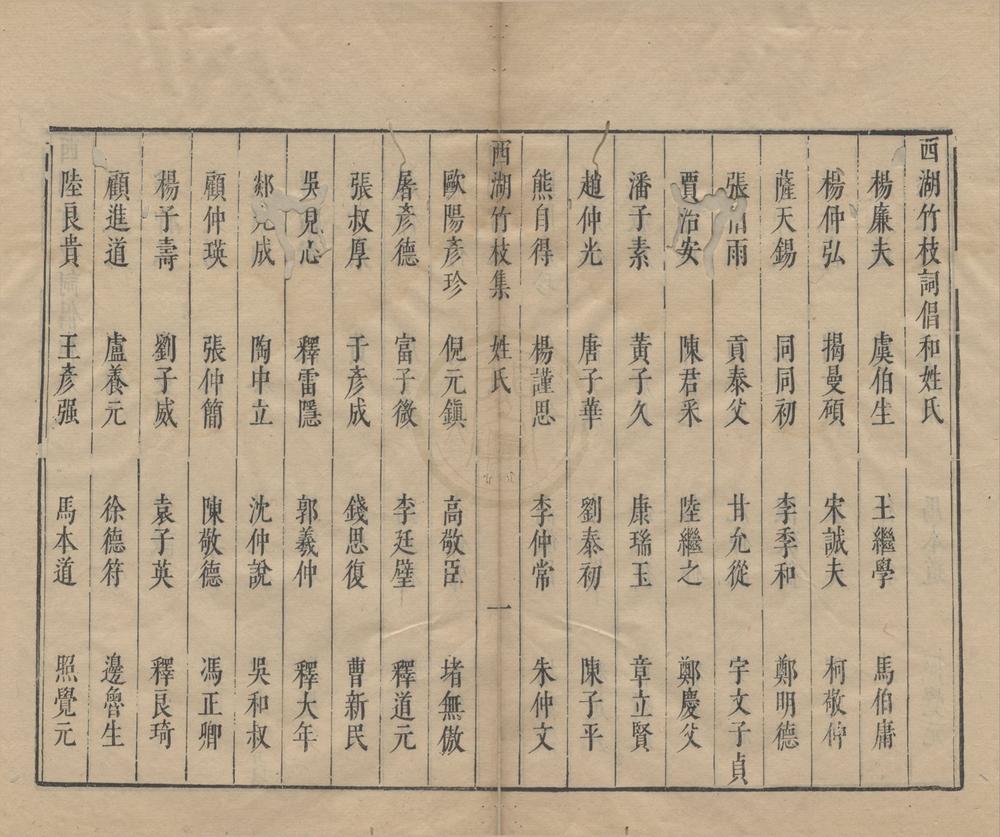 西湖竹枝詞倡和姓氏
楊廉夫 虞伯生 王繼學 馬伯庸
楊仲弘 揭曼碩 宋誠夫 柯敬仲
薩天錫 同同初 李季和 鄭明德
張雨 貢泰父 甘允從 宇文子貞
賈治安 陳君采 陸繼之 鄭慶父
潘子素 黃子久 康瑞玉 章立賢
趙仲光 唐子華 劉泰初 陳子平
熊自得 楊謹思 李仲常 朱仲文
西湖竹枝集 姓氏 一
歐陽彥珍 倪元鎭 高敬臣 堵無傲
屠彥德 富子微 李廷璧 釋道元
張叔厚 于彥成 錢思復 曹新民
吳見心 釋雷隱 郭義仲 釋大年
郯九成 陶中立 沈仲說 吳和叔
顧仲瑛 張仲簡 陳敬德 馮正卿
楊子壽 劉子威 袁子英 釋良琦
顧進道 盧養元 徐德符 邊魯生
陸良貴 王彥强 馬本道 照覺元